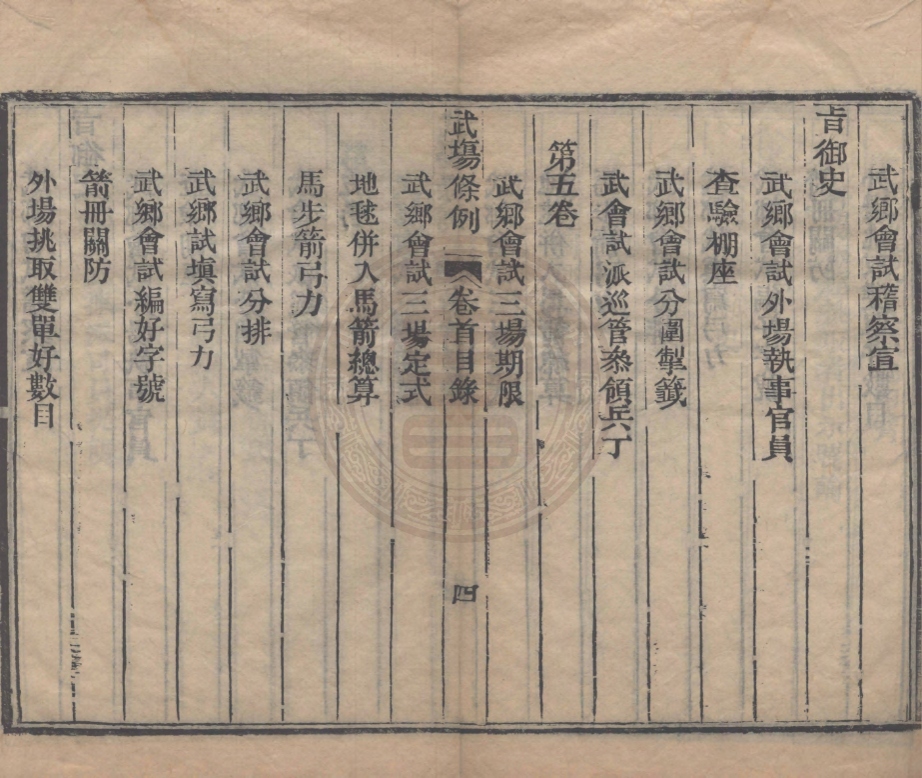 武鄉會試稽察宣
旨御史
武鄉會試外場執事官員
查驗棚座
武鄉會試分圍掣籤
武會試派巡管叅領兵丁
第五卷
武鄉會試三場期限
武塲條例 卷首目錄 四
武鄉會試三場定式
地毬併入馬箭總算
馬步箭弓力
武鄉會試分排
武鄉試塡寫弓力
武鄉會試編好字號
箭冊關防
外場挑取雙單好數目